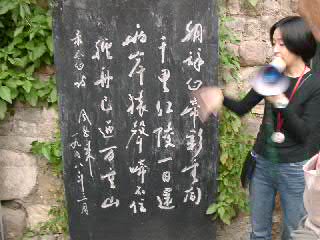 朝辞白帝彩云间
千里江陵一日还
两岸猿声啼不住
轻舟已过万重山
李白诗 周恩来
一九五八年三月